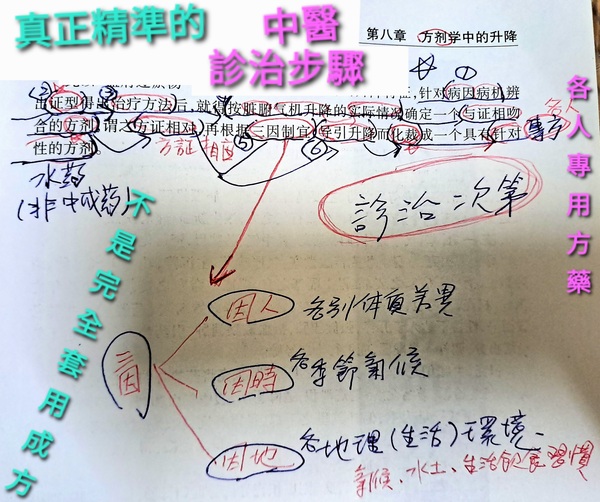 真正精準的
中醫
診治步驟
第八章 方剂学中的升降
针对病因病机辨
出证型得出治疗方法后,就得按脏腑气机升降的实际情况确定一个与证相吻
合的方剂,谓之方证相对,再根据三因制宜,导引升降而化裁成一个具有针对
性的方剂。
② ③ ④ ①
⑤ ⑥
方証相应
各人
專方
水药
(非中成药)
診治次第
各人專用方藥
不是完全套用成方
三因
因人 各別体質差異
因時 各季節氣候
因地 各地理(生活)環境、
氣候、水土、生活飲食習慣